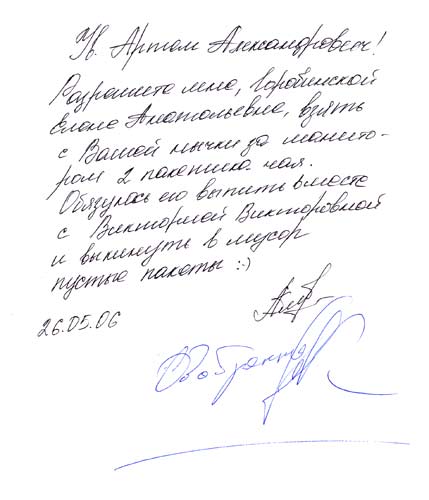 Ув. Артем Александрович!
Разрешите мне, Горобинской
Елене Анатольевне, взять
с Вашей нычки за монито-
ром 2 пакетика чая.
Обязуюсь его выпить вместе
с Викторией Викторовной
и выкинуть в мусор
пустые пакеты :-)
26.05.06